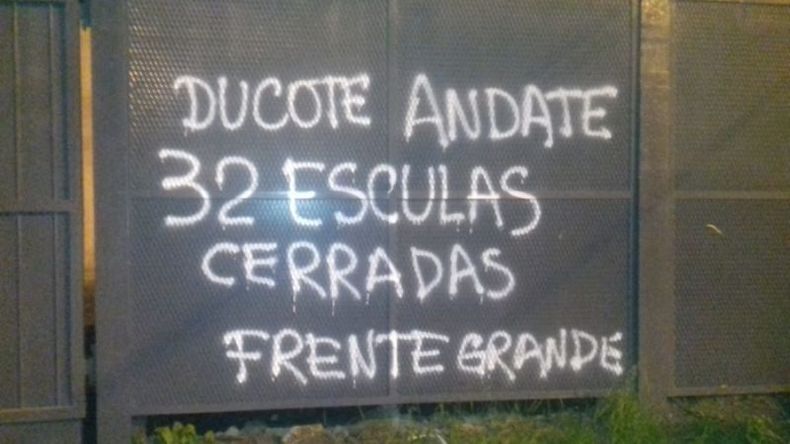 DUCOTE ANDATE
32 ESCULAS
CERRADAS
FRENTE GRANDE